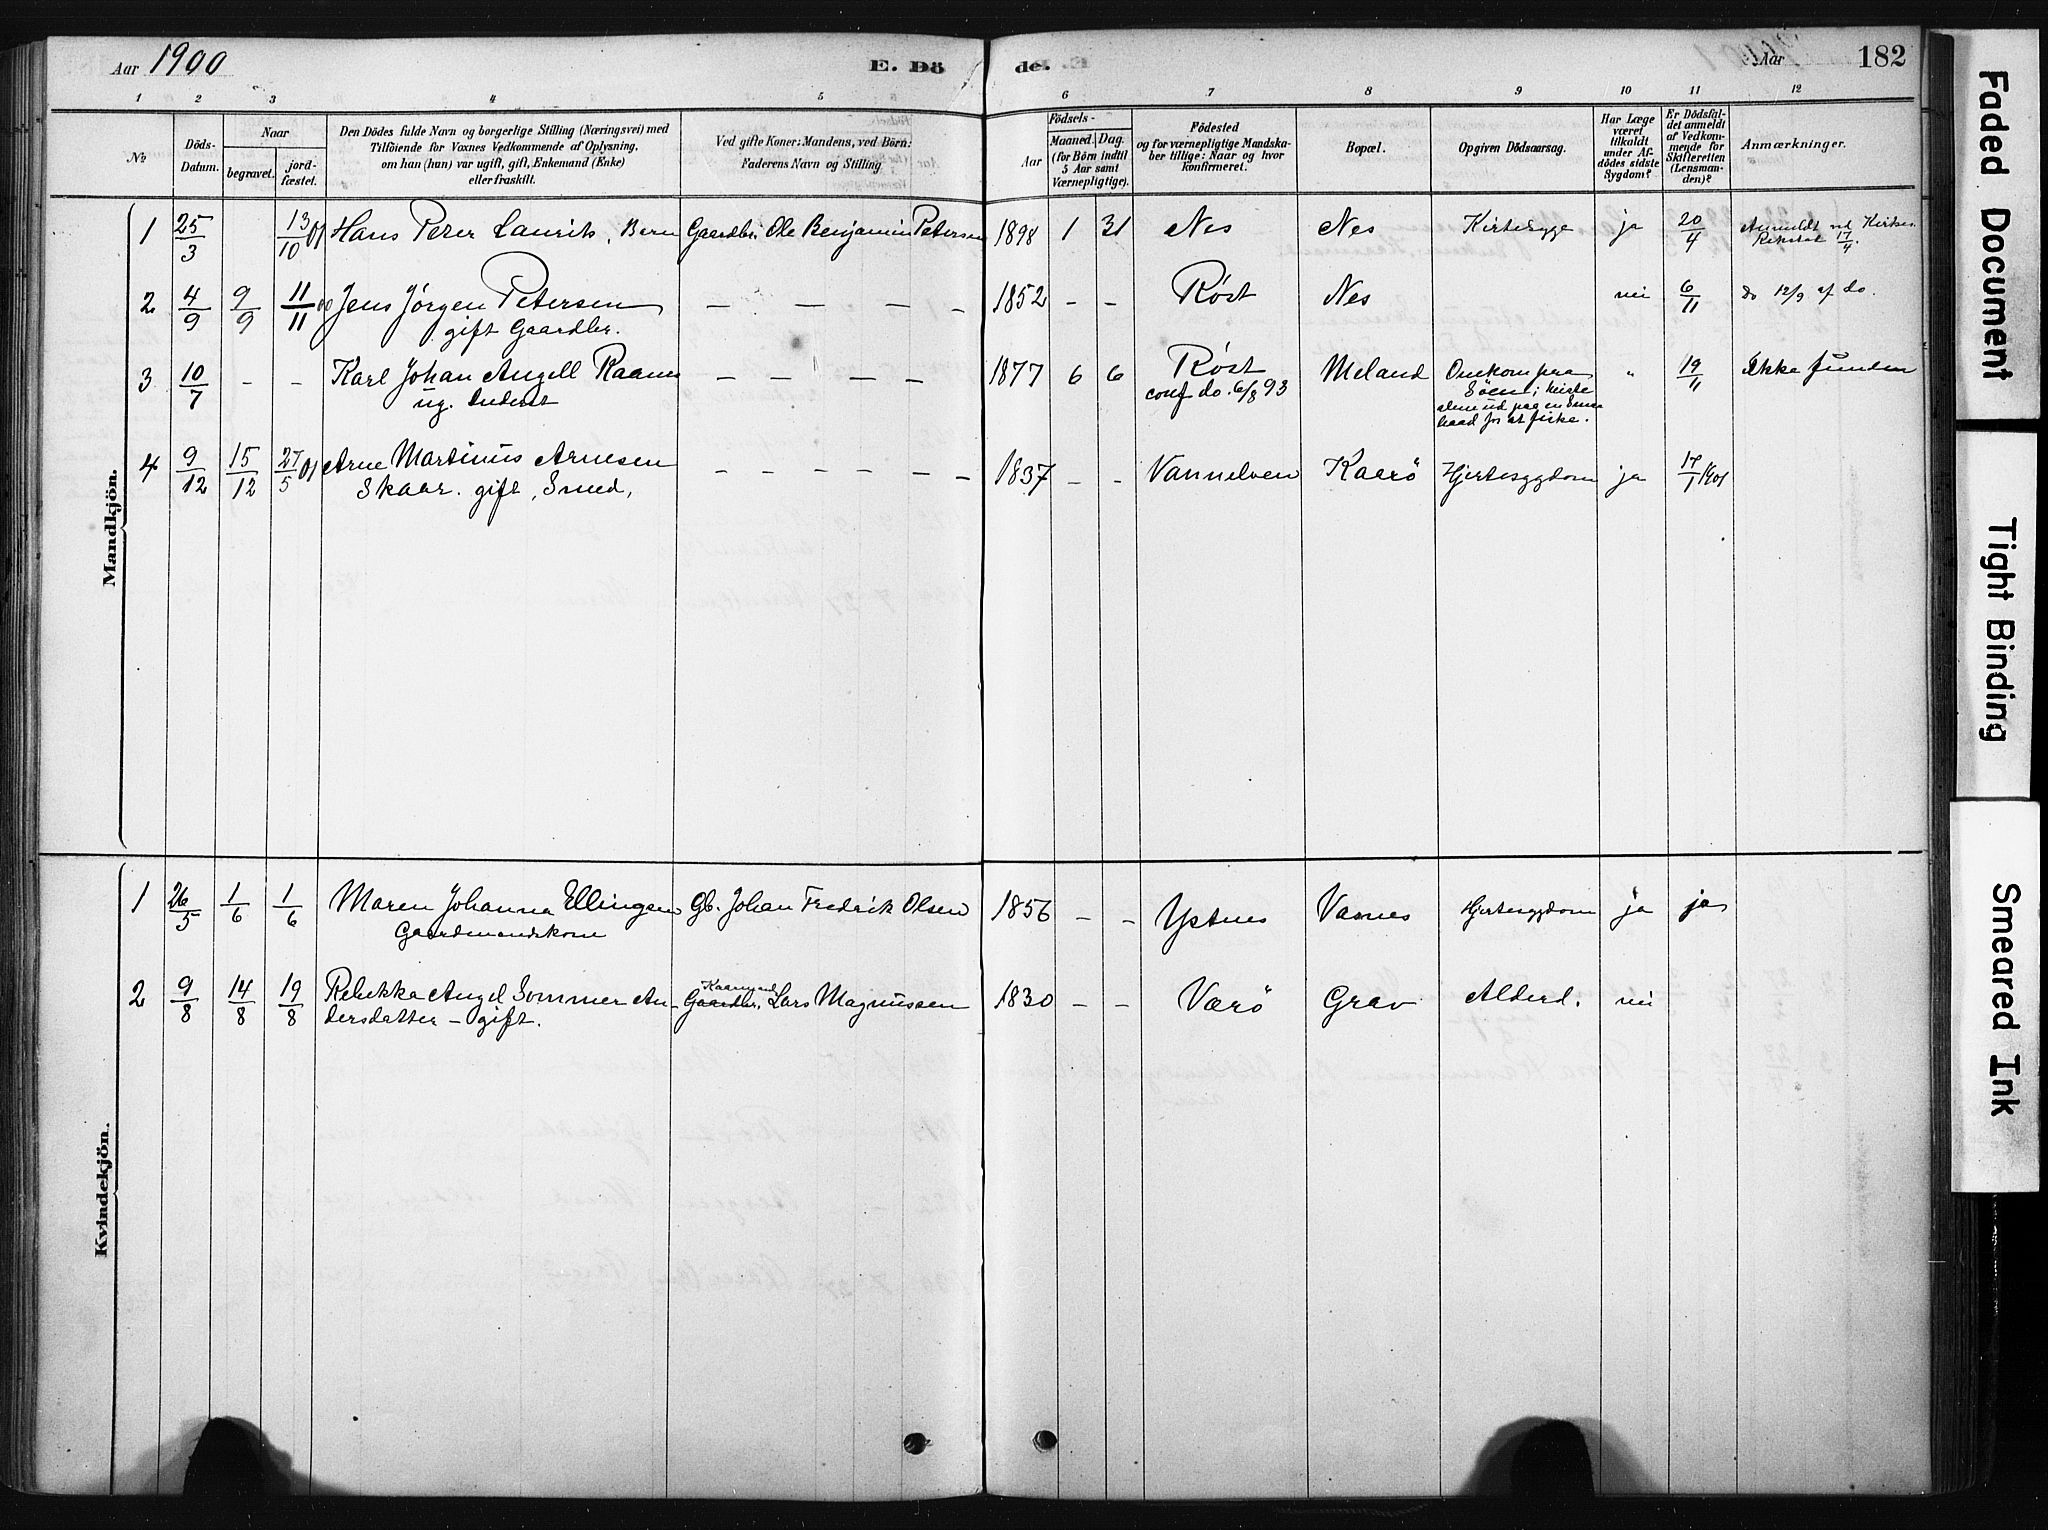 Aar 1900 E. Dö de. Aar 182
1 2 3 4 5 6 7 8 9 10 11 12
No
Döds-Datum.
Naar
begravet.
jord-fæstet.
Den Dödes fulde Navn og borgerlige Stilling (Næringsvei) med
Tilföiende for Voxnes Vedkommende af Oplysning,
om han (hun) var ugift, gift, Enkemand (Enke)
eller fraskilt.
Ved gifte Koner: Mandens, ved Börn:
Faderens Navn og Stilling
Födsels-
Aar
Maaned. Dag.
(for Börn indtil
5 Aar samt
Værnepligtige).
Födested
og for værnepligtige Mandska-
ber tillige: Naar og hvor
konfirmeret.
Bopæl.
Opgiven Dödsaarsag.
Har Læge
været
tilkaldt
under Af-
dödes sidste
Sygdom?
Er Dödsfal-
det anmeldt
af Vedkom-
mende for
Skifteretten
(Lensman-
den)?
Anmærkninger.
Mandkjön.
1 25/3 13/10 01 Hans Peter Laurits, Barn Gaardbr. Ole Benjamin Petersen 1898 1 31 Nes Nes Kirtelsyge ja 20/4 Anmeldt ved Kirken
17/4.
2 4/9 9/9 11/11 00 Jens Jörgen Petersen — — — — 1852 - - Røst Nes nei 6/11 do 12/9 af do.
gift Gaardbr.
3 10/7 - - Karl Johan Angell Raanes — — — — 1877 6 6 Røst Meland Omkom paa " 19/11 Ikke funden
ug. conf do. 6/8 93 Söen;
alene ud paa en
baad for at fiske.
4 9/12 15/12 27/5 01 Arne Martinus Arnesen - - - - - - 1837 - - Vannelven Kaarö Hjertesygdom ja 17/1 1901
Skaar. gift, Smed,
Kvindekjön.
1 26/5 1/6 1/6 Maren Johanna Ellingsen Gb. Johan Fredrik Olsen 1856 - - Ystnes Varnes Hjertesygdom ja ja
Gaardmandskone
2 9/8 14/8 19/8 Rebekka Angel Sommer An- Gaardbr. Lars Magnussen 1830 - - Værö Grav Alderd. nei
dersdatter - gift.
Faded Document
Tight Binding
Smeared Ink